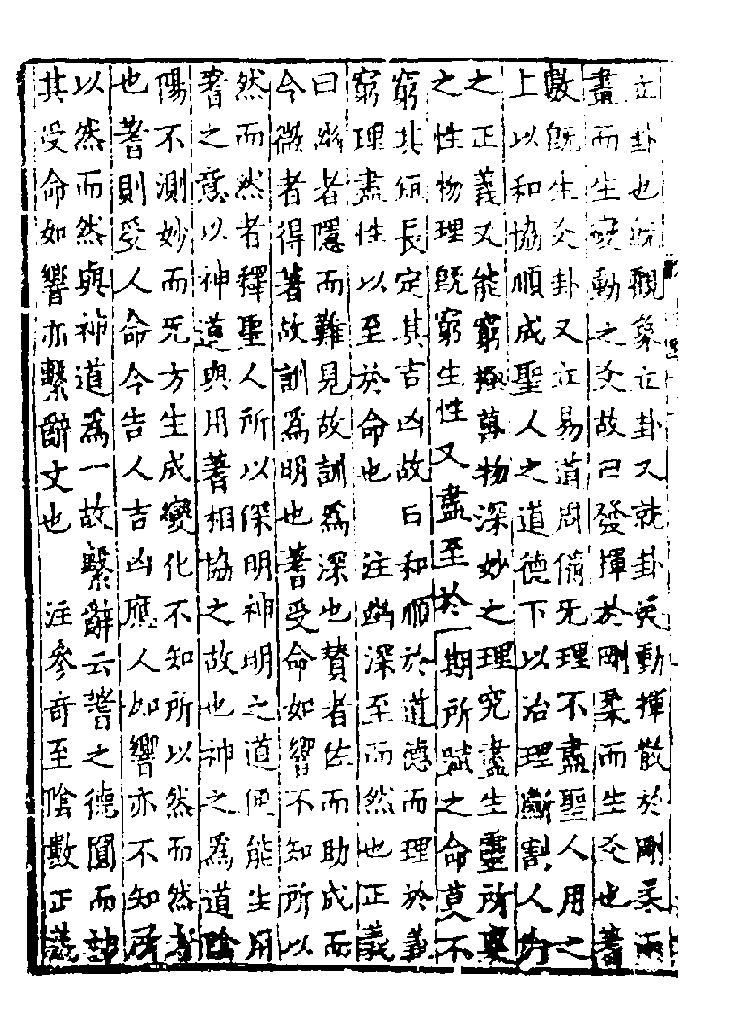 立卦也既觀象立卦又就卦發動揮散於剛柔兩
畫而生變動之爻故曰發揮於剛柔而生爻也蓍
數既生爻卦又立易道周備无理不盡聖人用之
上以和協順成聖人之道德下以治理斷割人倫
之正義又能窮極萬物深妙之理究盡生靈所稟
之性物理既窮生性又盡至於一期所賦之命莫不
窮其短長定其吉凶故曰和順於道德而理於義
窮理盡性以至於命也 注幽深至而然也正義
曰幽者隱而難見故訓為深也贊者佐而助成而
今微者得著故訓為明也蓍受命如響不知所以
然而然者釋聖人所以深明神明之道便能生用
蓍之意以神道與用蓍相協之故也神之為道陰
陽不測妙而无方生成變化不知所以然而然者
也蓍則受人命令告人吉凶應人如響亦不知所
以然而然與神道為一故繫辭云蓍之德圓而神
其受命如響亦繫辭文也 注參奇至陰數正義